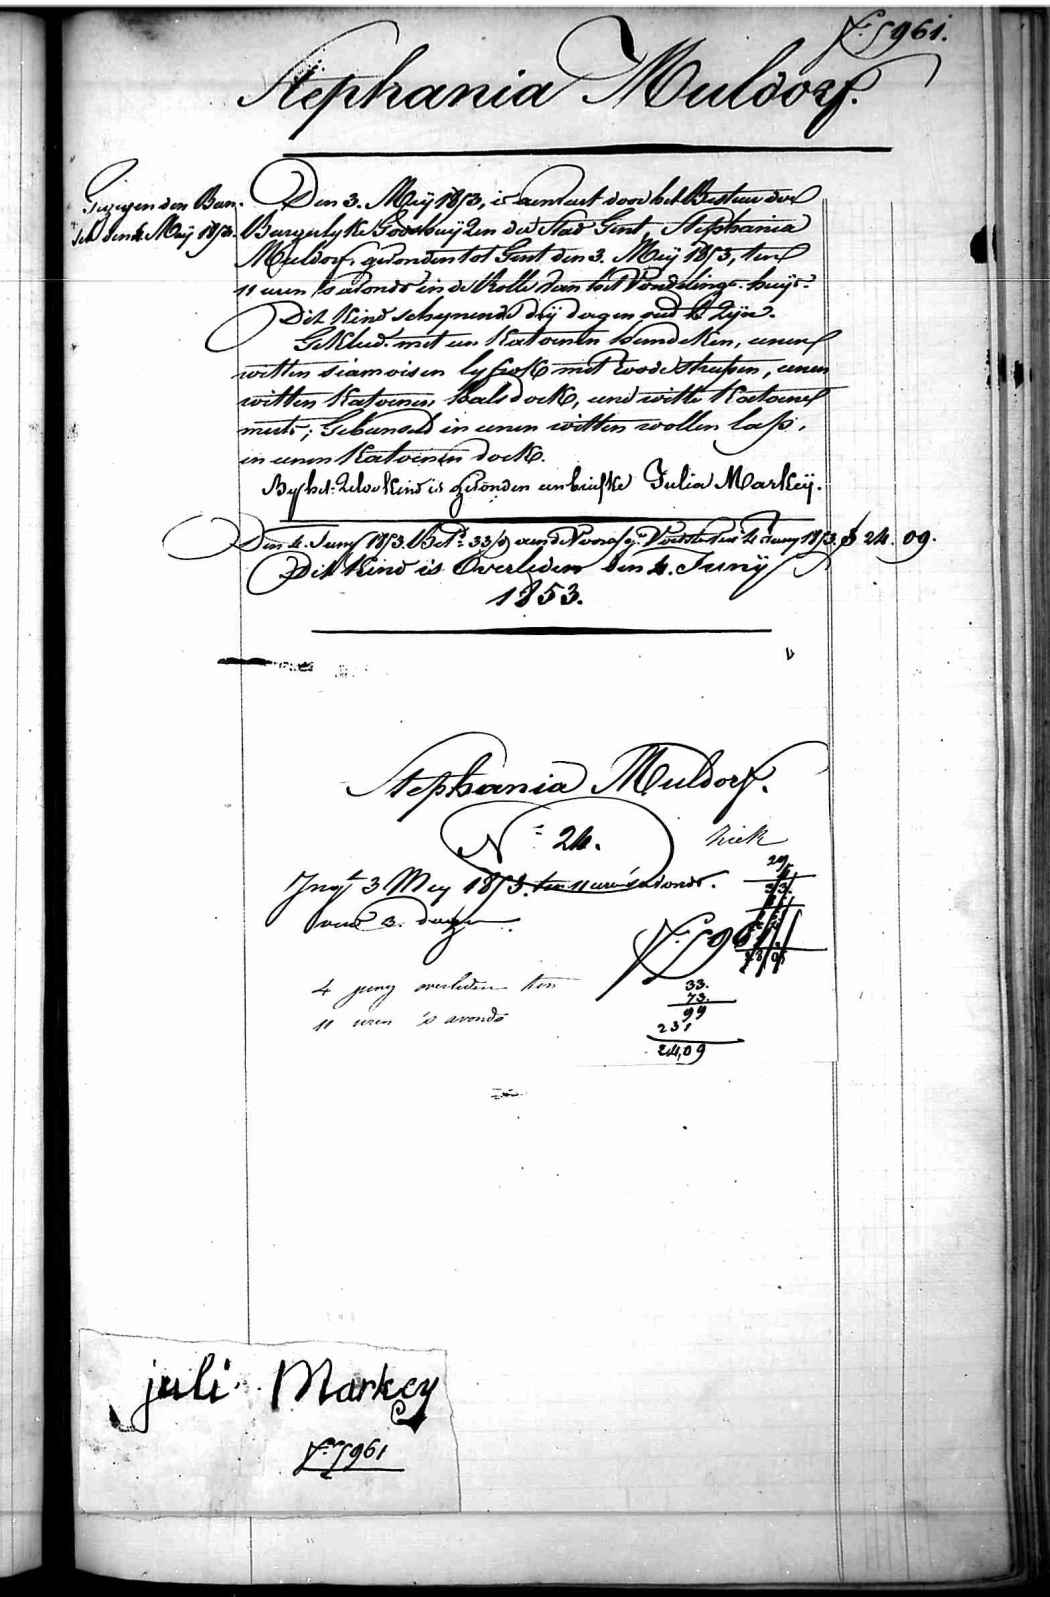 F.° 5961.
Stephania Muldorf.
den Ban.
den 4 Meÿ 1853.
Den 3. Meÿ 1853, is aenveert door het Bestuer der
Burgerlyke Godshuyzen der Stad Gent, Stephania
Muldorf, gevonden tot Gent den 3. Meÿ 1853, ten
11 uren 's avonds in de Rolle van het Vondelings-huys.
Dit Kind schynende drÿ dagen oud te zyn.
Gekleed met een Katoenen hemdeken, eenen
witten siamoisen lyfrok met roode streepen, eenen
witten Katoenen halsdoek, eene witte Katoene
muts; Gebunseld in eenen witten wollen lap,
in eenen Katoenen doek.
By het zelve Kind is gevonden een briefke Julia Markeÿ.
Den 4. Juny 1853. Bet. 33/ aen de Voors. Voedster 4 Juny 1853. 24. 09.
Dit Kind is Overleden den 4. Junÿ
1853.
Stephania Muldorf.
N.° 24. ziek
Ingt 3 Mey 1853. ten 11 uren 's avonds.
oud 3. dagen
F.° 5961
4 juny overleden ten
11 uren 's avonds
33.
73.
99
231
24,09
juli Markey
F.° 5961